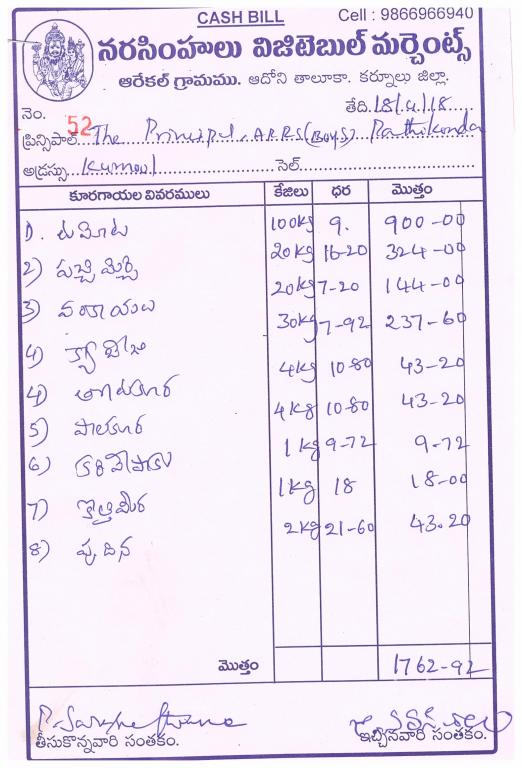 CASH BILL Cell : 9866966940
నరసింహలు విజిటెబుల్ మర్చెంట్స్
ఆరేకల్ గ్రామము. ఆదోని తాలూకా. కర్నూలు జిల్లా.
నెం. 52 తేది. 18/4/18
ప్రిన్సిపాల్ The Principal, A.P.R.S (Boys) Pathikonda
అడ్రస్సు Kurnool సెల్.
కూరగాయల వివరములు కేజీలు ధర మొత్తం
1). టమోట 100kg 9. 900-00
2) పచ్చి మిర్చి 20kg 16-20 324-00
3) వంకాయలు 20kg 7-20 144-00
4) క్యాబేజి 30kg 7-92 237-60
4) తోటకూర 4kg 10-80 43-20
5) పాలకూర 4kg 10-80 43-20
6) కరివేపాకు 1kg 9-72 9-72
7) కొత్తిమీర 1kg 18 18-00
8) పుదిన 2kg 21-60 43.20
మొత్తం 1762-92
తీసుకొన్నవారి సంతకం. ఇచ్చినవారి సంతకం.